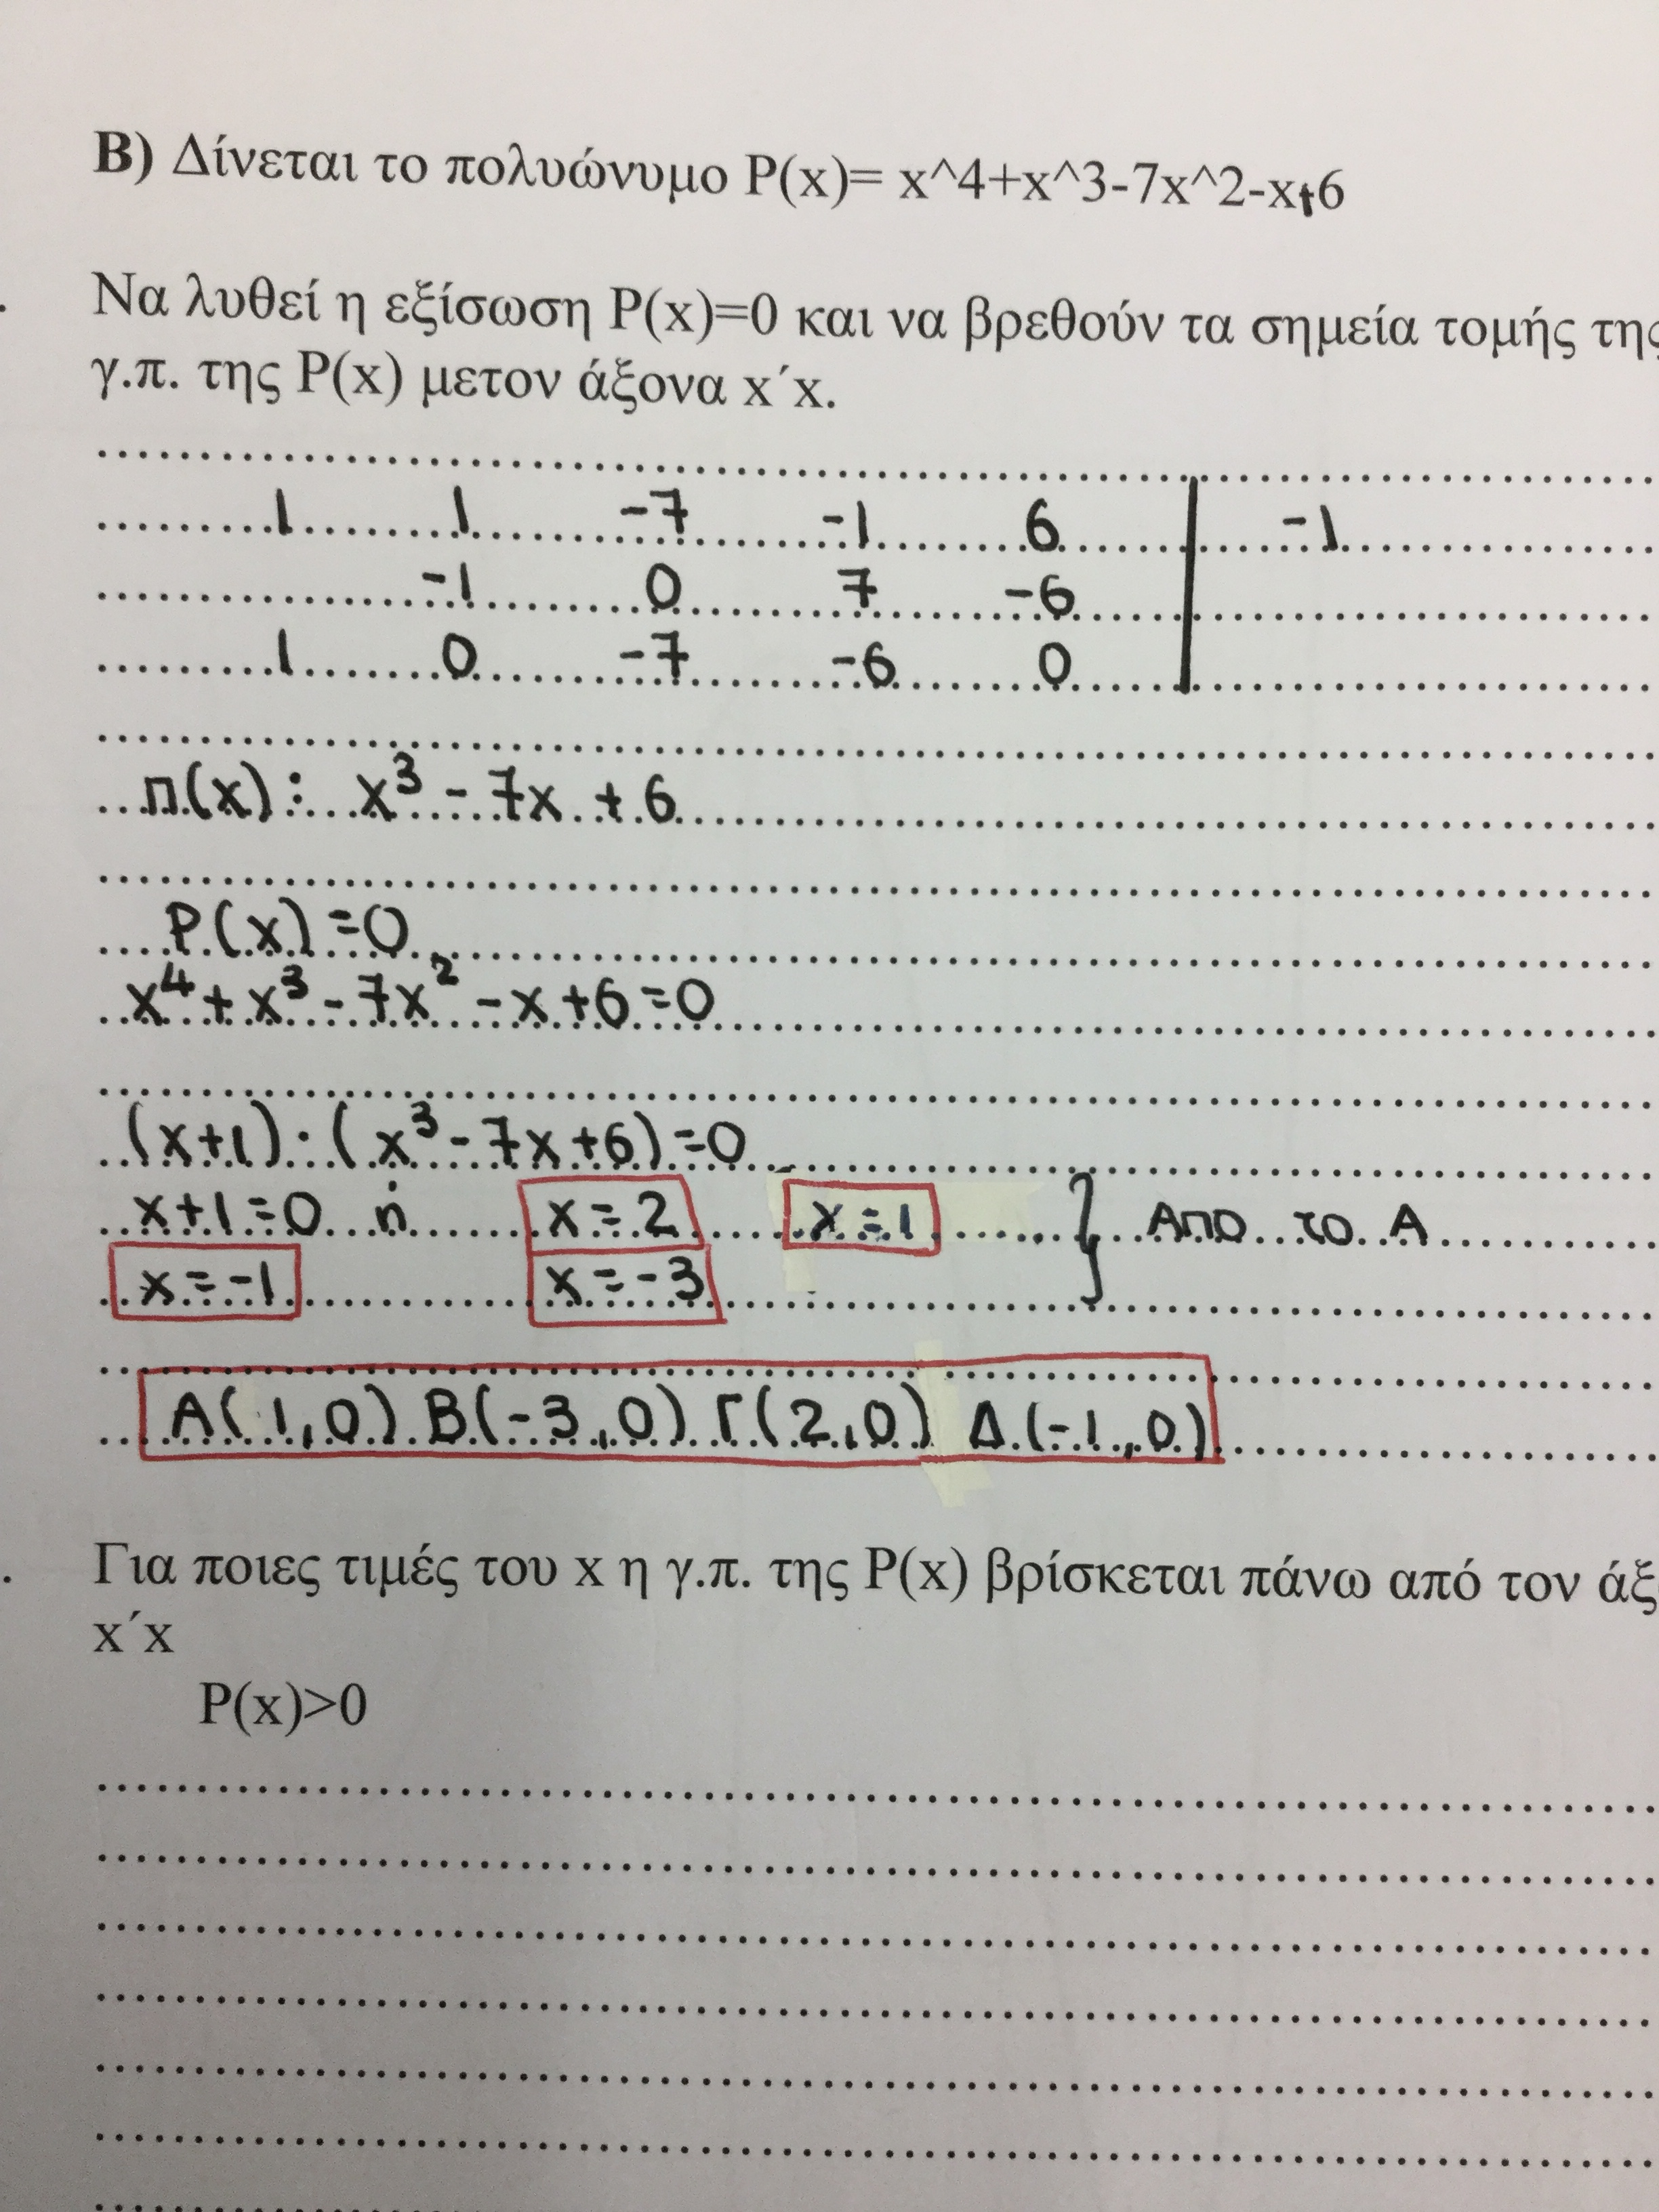 Β) Δίνεται το πολυώνυμο P(x)= x^4+x^3-7x^2-x+6
. Να λυθεί η εξίσωση P(x)=0 και να βρεθούν τα σημεία τομής της
γ.π. της P(x) μετον άξονα x΄x.
1 1 -7 -1 6 | -1
-1 0 7 -6
1 0 -7 -6 0
π(x): x³ - 7x + 6
P(x)=0
x⁴+x³-7x²-x+6=0
(x+1)·(x³-7x+6)=0
x+1=0 ή x=2 x=1 } Από το Α
x=-1 x=-3
Α(1,0) Β(-3,0) Γ(2,0) Δ(-1,0)
. Για ποιες τιμές του x η γ.π. της P(x) βρίσκεται πάνω από τον
x΄x
P(x)>0